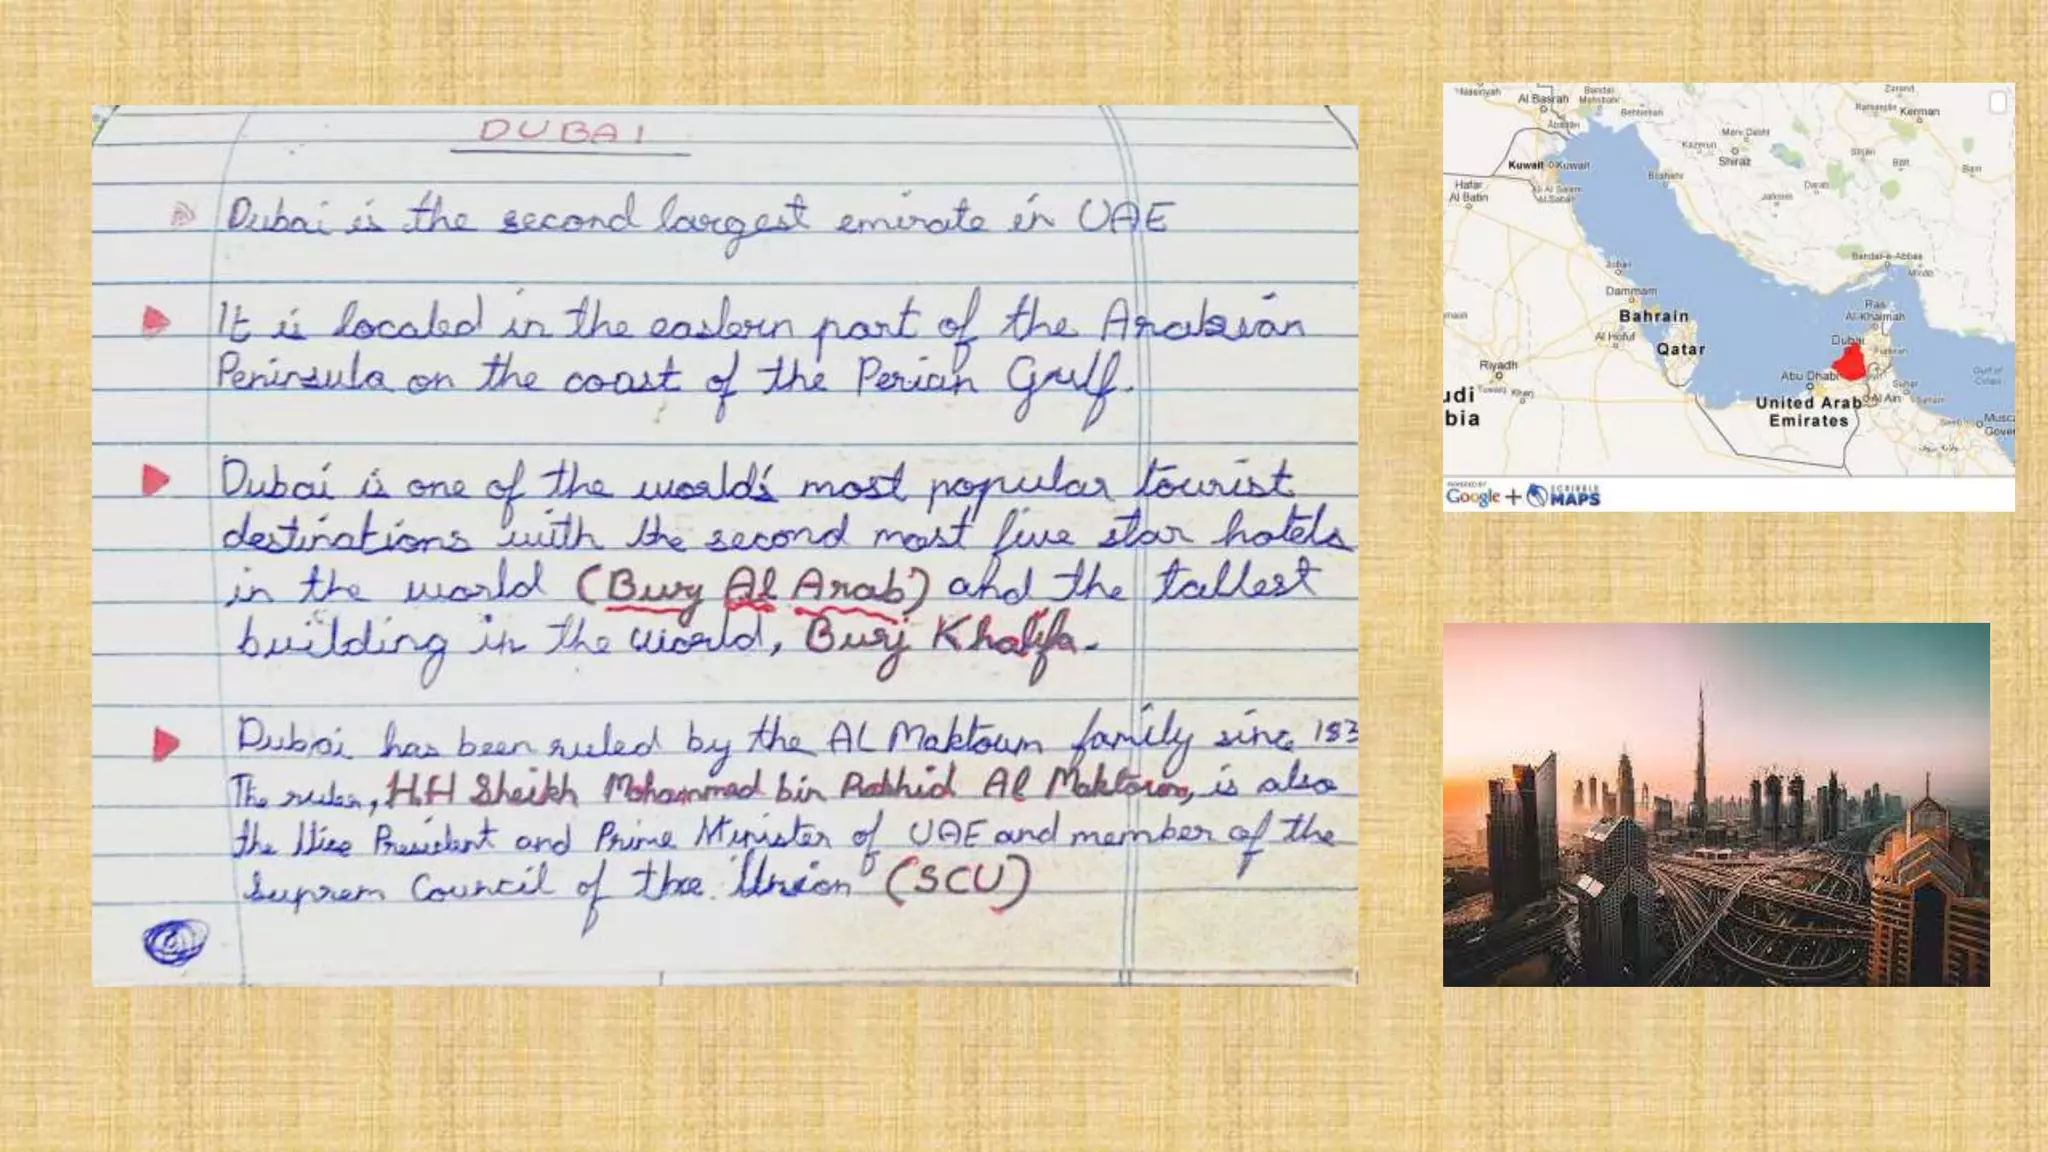 DUBAI
Dubai is the second largest emirate in UAE
It is located in the eastern part of the Arabian
Peninsula on the coast of the Perian Gulf.
Dubai is one of the world's most popular tourist
destinations with the second most five star hotels
in the world (Burj Al Arab) and the tallest
building in the world, Burj Khalifa.
Dubai has been ruled by the AL Maktoum family since 183
The ruler, H.H Sheikh Mohammed bin Rashid Al Maktoum, is also
the Vice President and Prime Minister of UAE and member of the
Suprem Council of the Union (SCU)
Al Basrah
Bandar
Zarand
Kerman
Kuwait Kuwait
Shiraz
Hafar
Al Batin
Jahrom
Darab
Bam
Bandar-e-Abbas
Jubail
Dammam
Ras
Al-Khaimah
Bahrain
Al Hofuf
Qatar
Dubai
Fujairah
Riyadh
Abu Dhabi
Suhar
Gulf of
Al Ain
udi
bia
United Arab
Emirates
Musca
Gover
POWERED BY
Google + SCRIBBLE MAPS